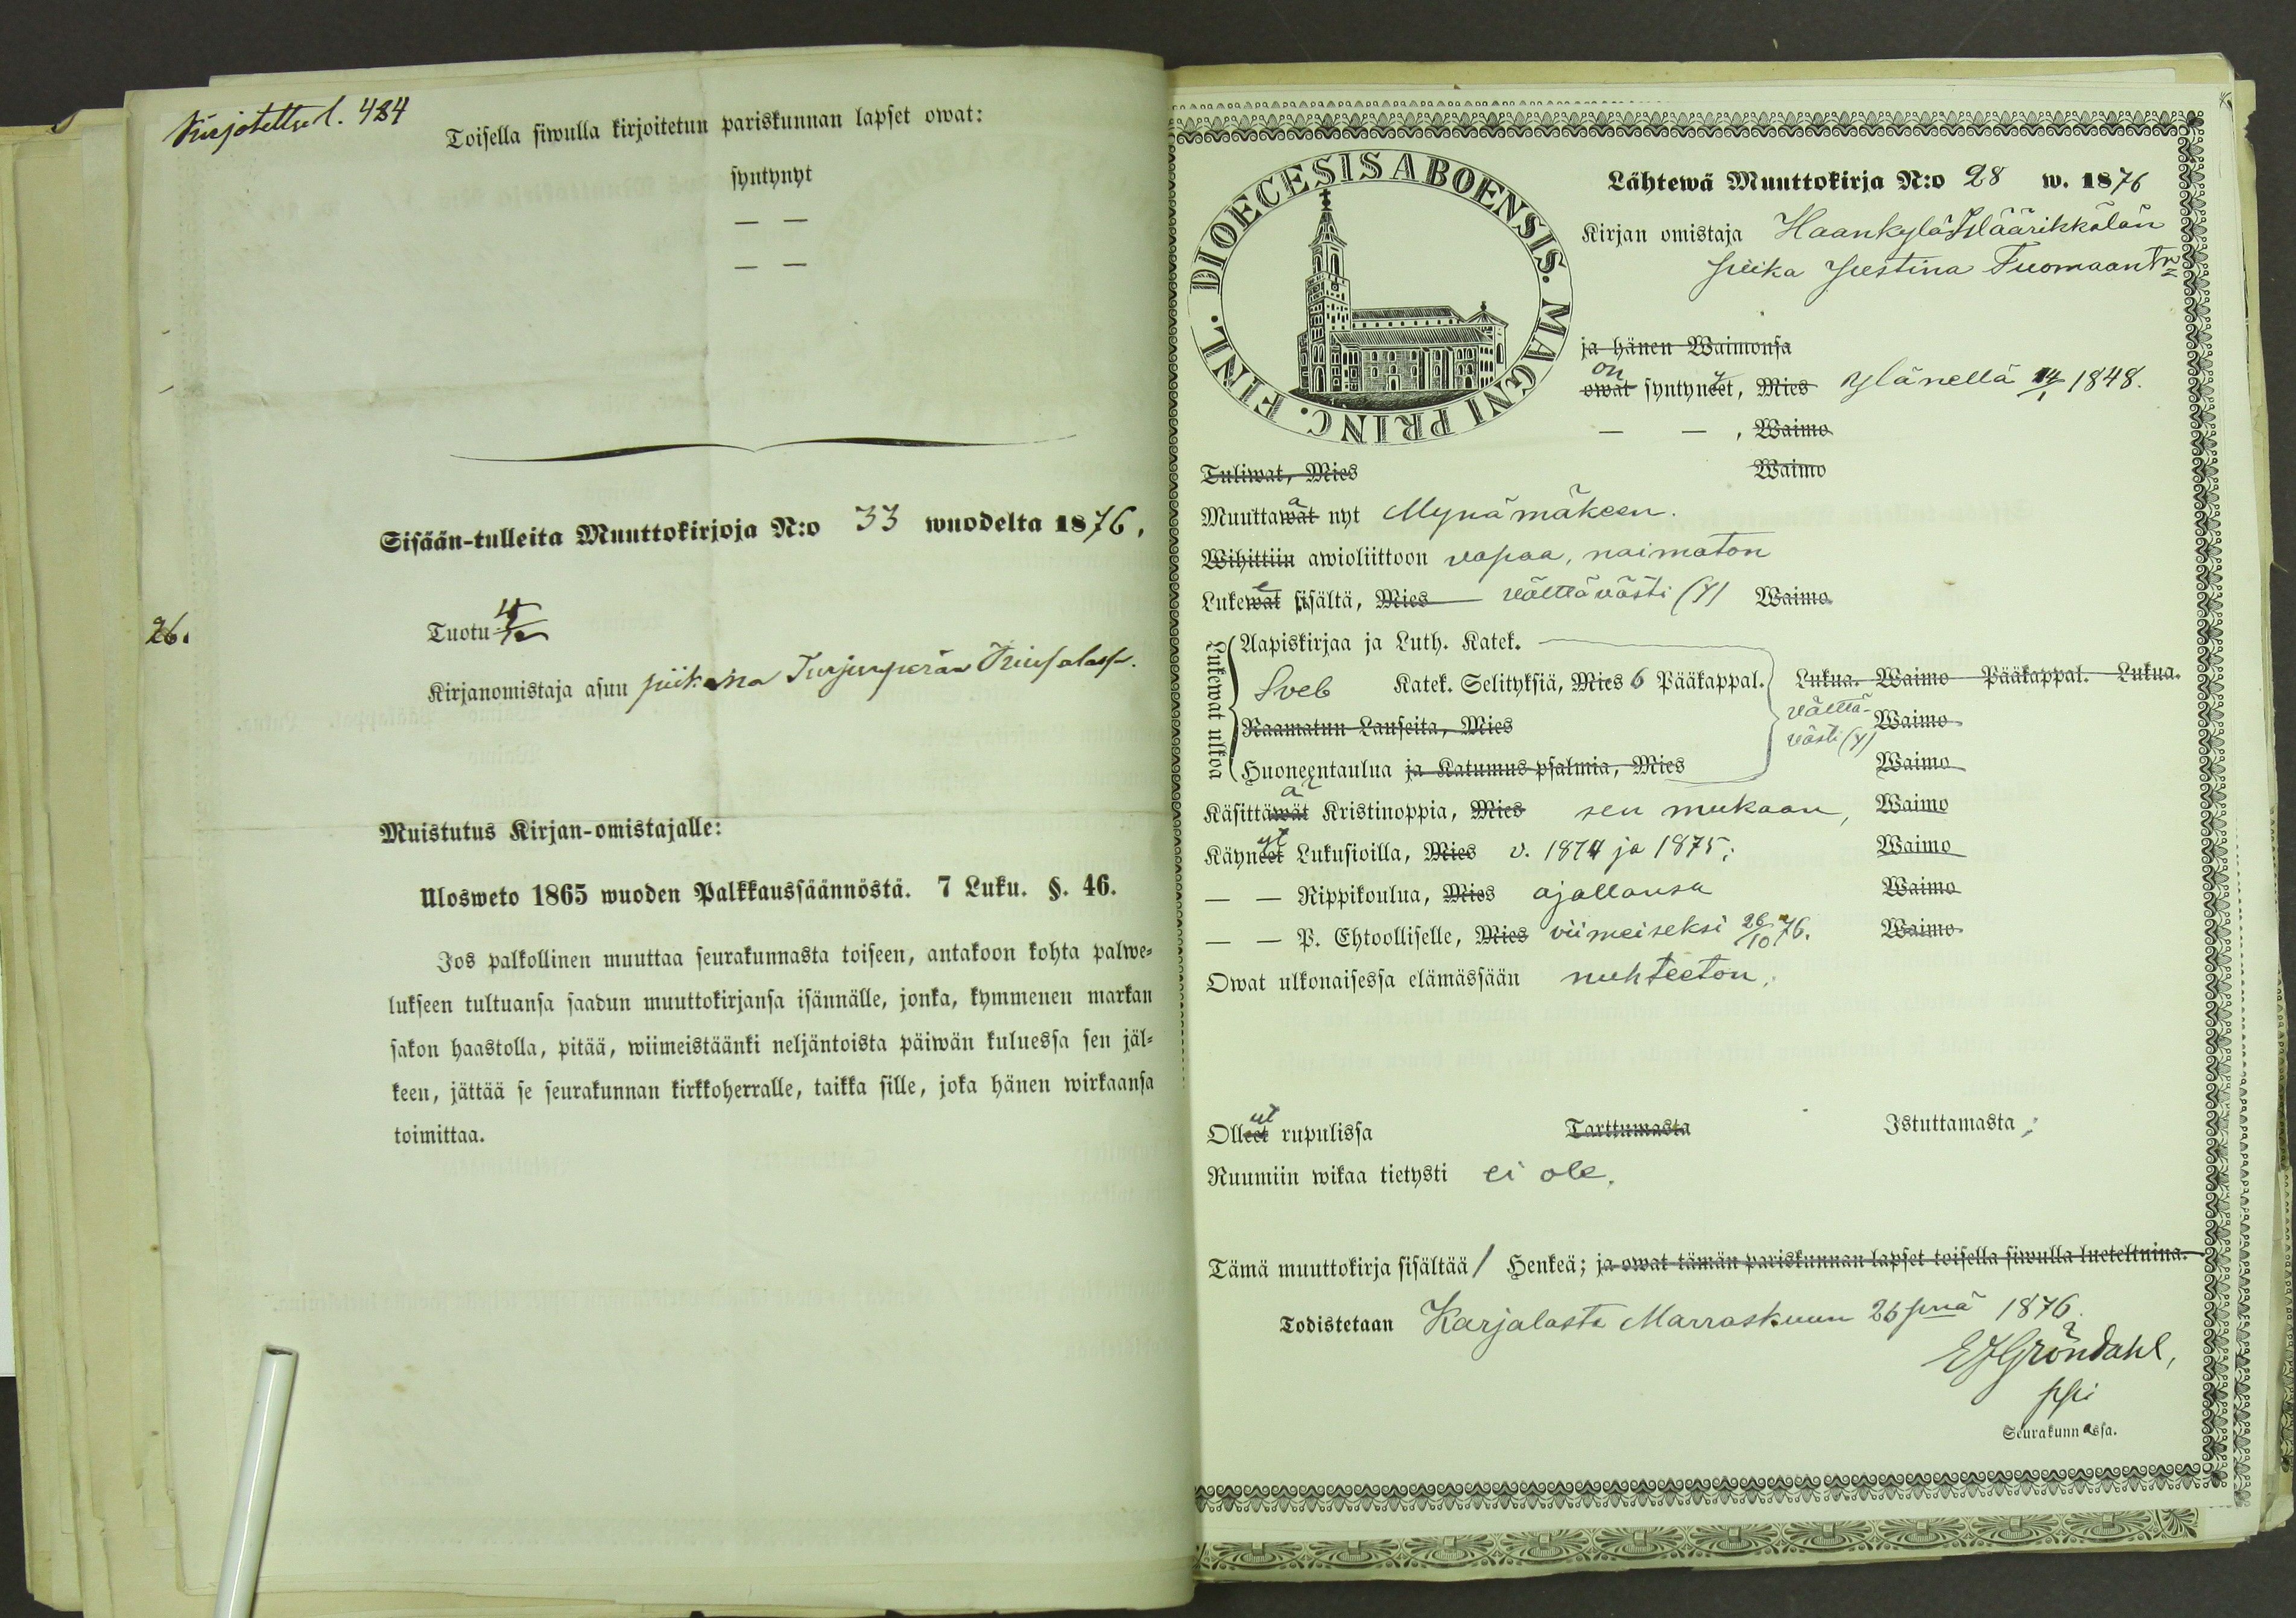 Kirjotettu l. 484
Toisella siwulla kirjoitetun pariskunnan lapset owat:
syntynyt
— —
— —
Sisään-tulleita Muuttokirjoja N:o 33 wuodelta 1876.
26.
Tuotu
Kirjanomistaja asuu piikana
Muistutus Kirjan-omistajalle:
Ulosweto 1865 wuoden Palkkaussäännöstä. 7 Luku. §. 46.
Jos palkollinen muuttaa seurakunnasta toiseen, antakoon kohta palwe-
lukseen tultuansa saadun muuttokirjansa isännälle, jonka, kymmenen markan
sakon haastolla, pitää, wiimeistäänki neljäntoista päiwän kuluessa sen jäl-
keen, jättää se seurakunnan kirkkoherralle, taikka sille, joka hänen wirkaansa
toimittaa.
DIOECESIS ABOENSIS. MAGNI PRINC. FINL.
Lähtewä Muuttokirja N:o 28 w. 1876
Kirjan omistaja Haankylä Määrikkälän
piika Justina Tuomaantr
ja hänen Waimonsa
on
owat syntyneet, Mies Ylänellä 14/1 1848.
— — , Waimo
Tuliwat, Mies Waimo
Muuttawat nyt Mynämäkeen.
Wihittiin awioliittoon vapaa, naimaton
Lukewat sisältä, Mies välttävästi (y) Waimo
Lukewat ulkoa
Aapiskirjaa ja Luth. Katek.
Sveb Katek. Selityksiä, Mies 6 Pääkappal. Lukua. Waimo Pääkappal. Lukua.
Raamatun Lauseita, Mies välttä-
västi (y) Waimo
Huoneentaulua ja Katumus-psalmia, Mies Waimo
Käsittäwät Kristinoppia, Mies sen mukaan, Waimo
Käyneet Lukusioilla, Mies v. 1874 ja 1875; Waimo
— — Rippikoulua, Mies ajallansa Waimo
— — P. Ehtoolliselle, Mies viimeiseksi 26/10 76. Waimo
Owat ulkonaisessa elämässään nuhteeton.
Olleet rupulissa Tarttumasta Istuttamasta;
Ruumiin wikaa tietysti ei ole.
Tämä muuttokirja sisältää 1 Henkeä; ja owat tämän pariskunnan lapset toisella siwulla lueteltuina.
Todistetaan Karjalasta Marraskuun 26 pnä 1876.
EJGröndahl,
Seurakunnassa.